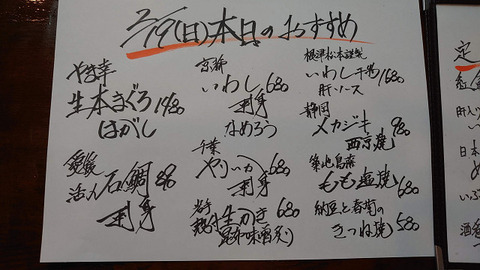 2/19(日)本日のおすすめ
やま幸
生本まぐろ 1480
はがし
愛媛
活〆石鯛 880
刺身
京都
いわし 680
刺身
なめろう
千葉
やりいか 680
刺身
岩手
生かき 680
昆布味噌炙り
根津松本謹製
いわし干物 1680
肝ソース
静岡
メカジキ 980
西京焼
築地鳥藤
もも塩焼 680
納豆と春菊の
きつね焼 580
定
日本
酒